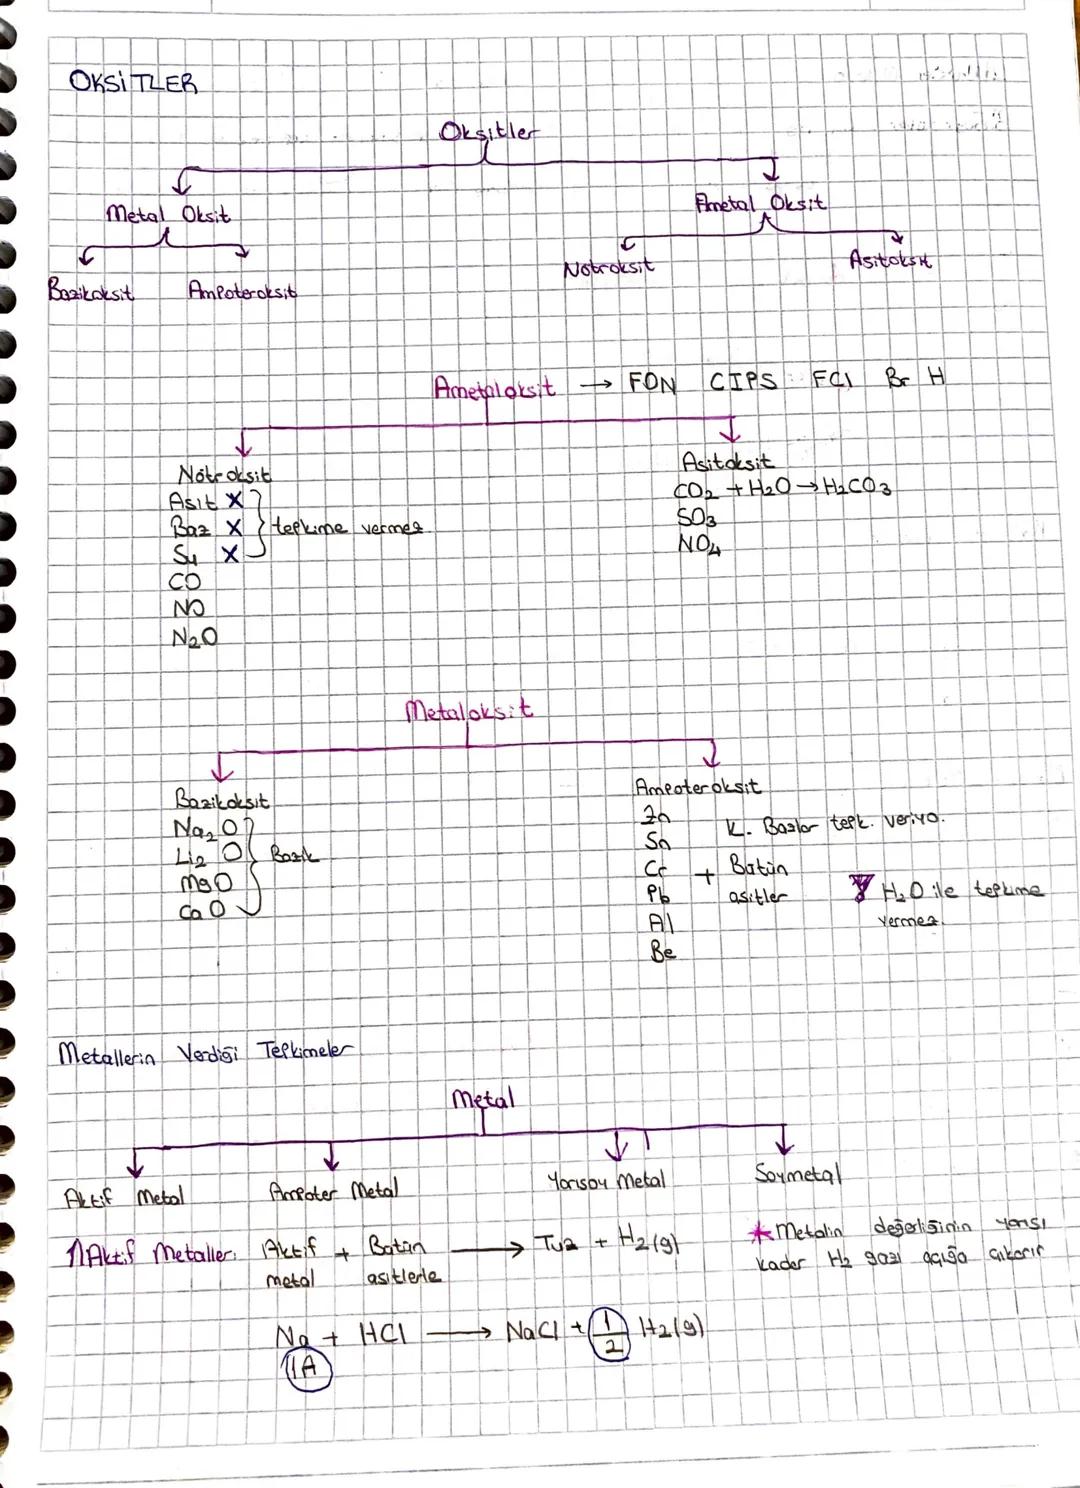 OKSİTLER
Oksitler
Metal Oksit
Ametal Oksit
Bazikoksit
Ampoteroksit
Nötroksit
Asitoksit
Ametaloksit → FON CIPS FCl Br H
Nötroksit
Asit X
Baz X
Su X
tepkime vermez
CO
NO
N2O
Asitoksit
CO2 + H2O → H2CO3
SO3
NO4
Metaloksit
Bazikoksit
Na2O
Li2O
MgO
CaO
Bazik
Ampoteroksit
Zn
Sn
Cr
Pb
Al
Be
K. Bazlar tepk. veriyo.
+ Bütün
asitler
H2O ile tepkime
vermez.
Metallerin Verdiği Tepkimeler
Metal
Aktif Metal
Ampoter Metal
Yarısoy Metal
Soymetal
1) Aktif Metaller: Aktif + Bütün → Tuz + H2(g)
metal asitlerle
* Metalin değerliğinin yarısı
kadar H2 gazı açığa çıkarır
Na + HCl → NaCl + 1/2 H2(g)
1A